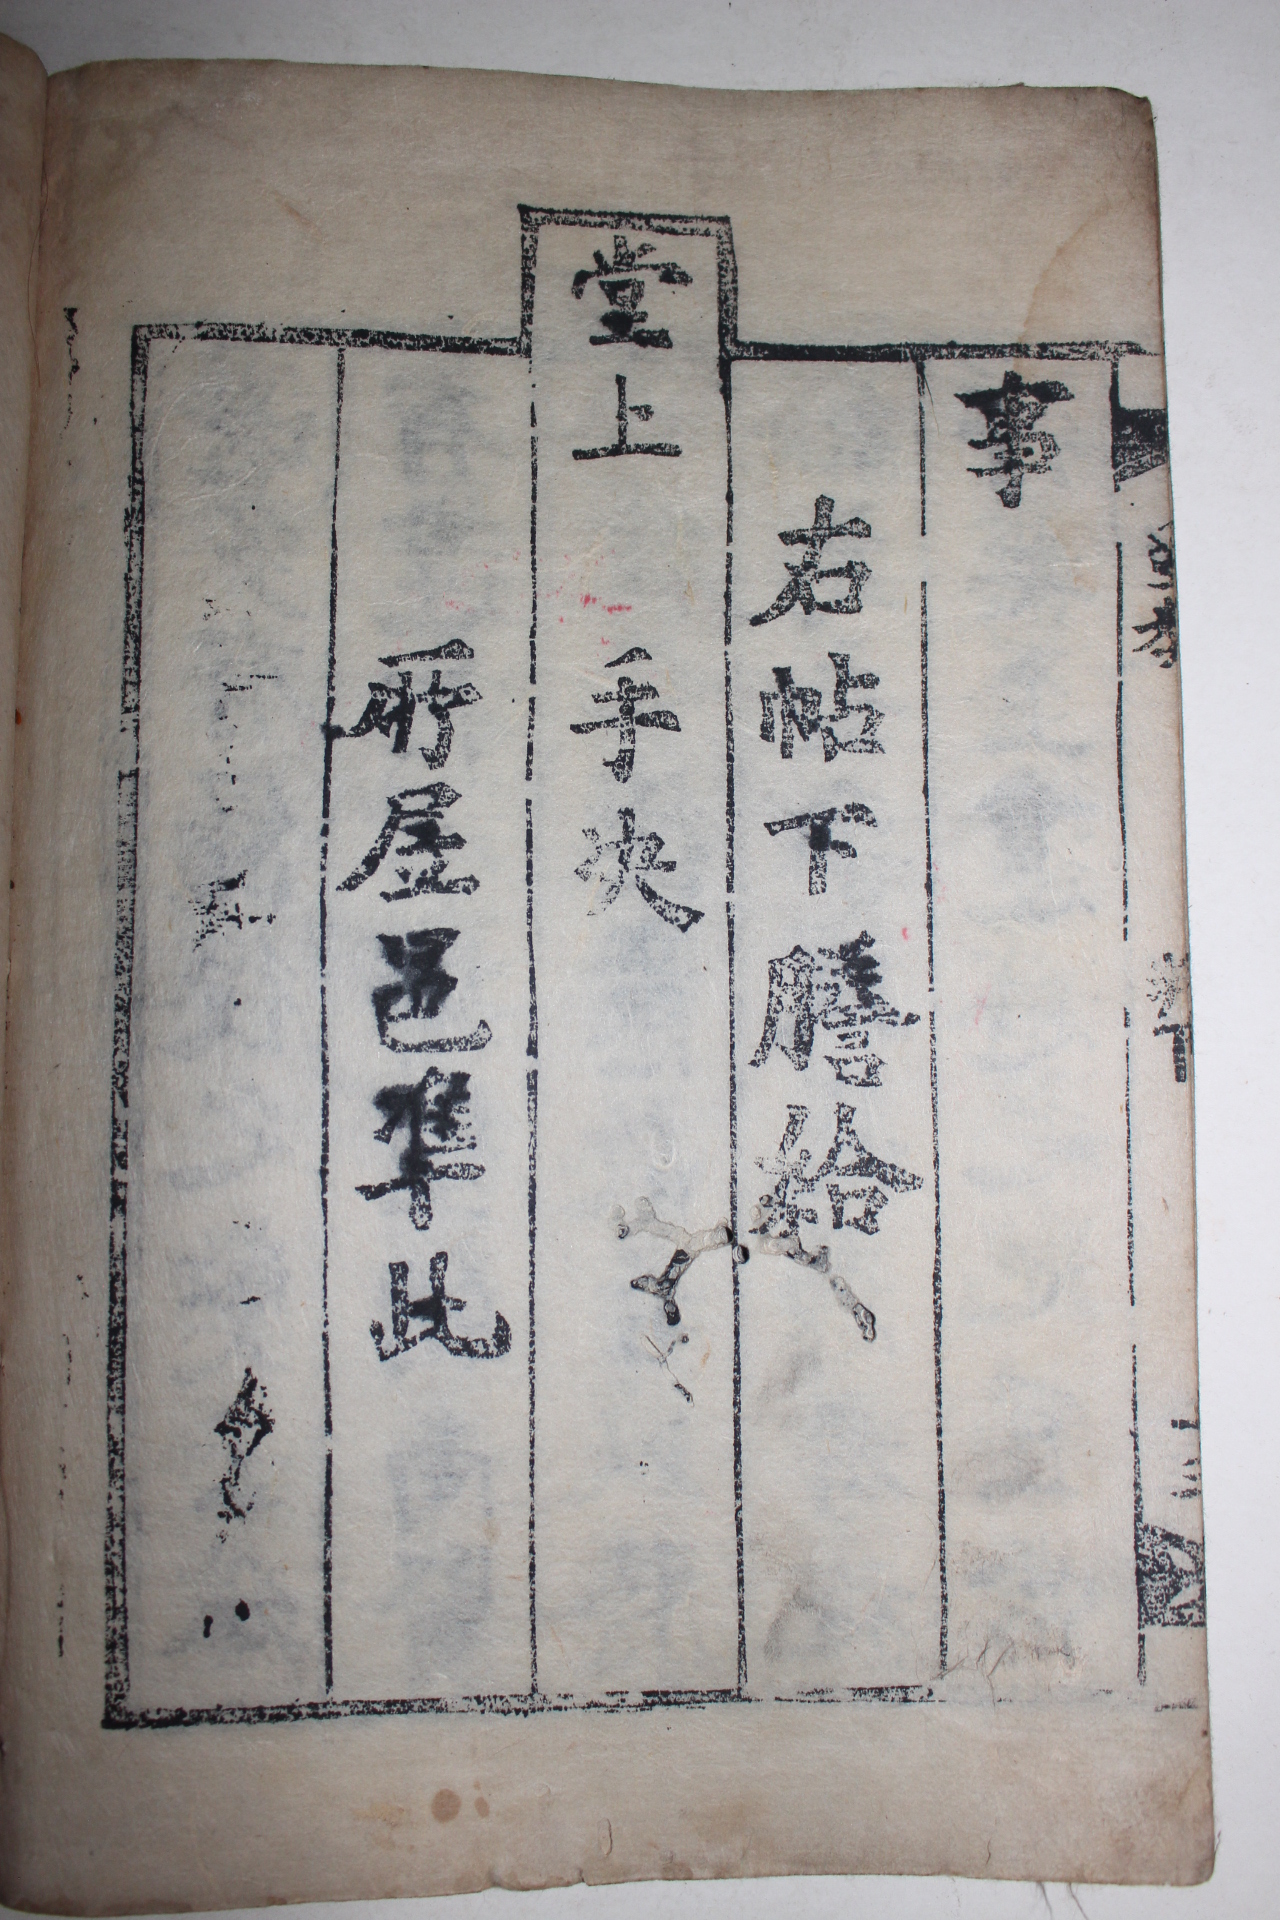 事
右帖下謄給
堂上 手决
所屋邑準此